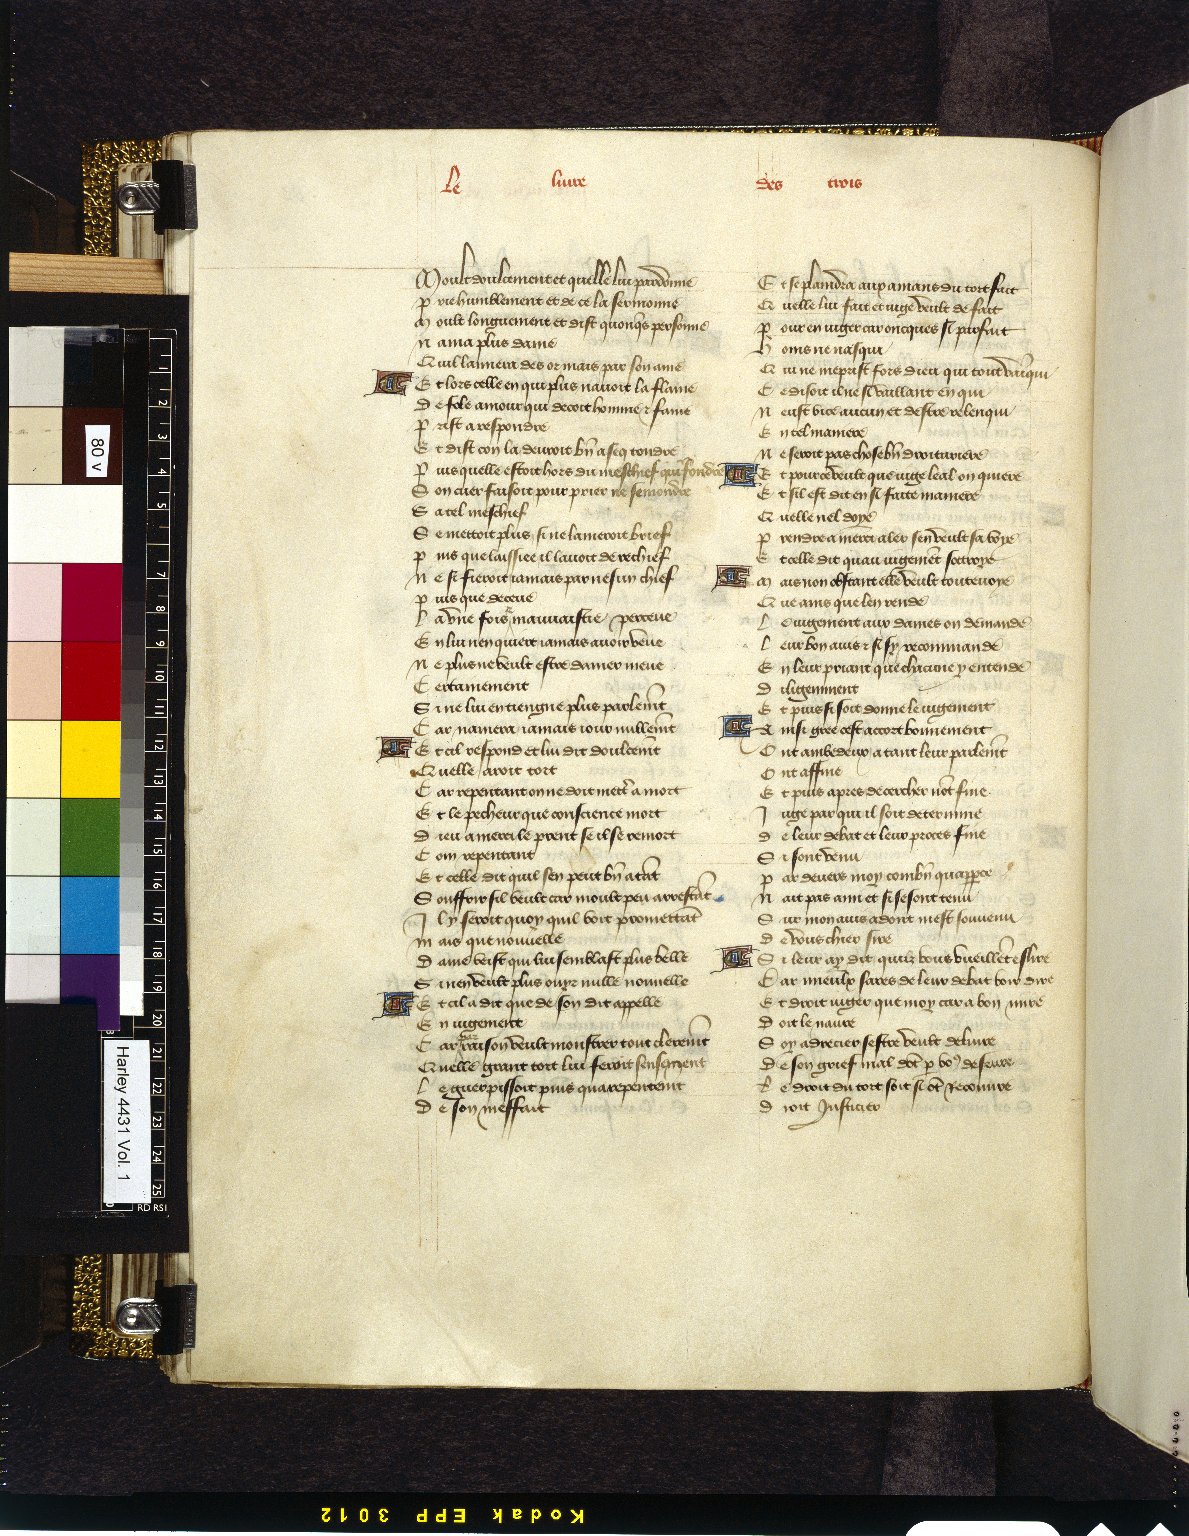 Le liure des trois
Moult doulcement et quelle lui pardonne
Prie humblement et de ce la sermonne
Moult longuement et dist quonq̄s personne
Nama plus dame
Quil lamera des or mais par son ame
Et lors celle en qui plus nauoit la flame
De fole amour qui decoit homme & fame
Prist a respondre
Et dist con la deuroit bn̄ aseq tondre
Puis quelle estoit hors du meschief qui fondre
Son cuer faisoit pour prier ne semondre
Sa tel meschief
Se mettoit plus si ne lameroit brief
Puis que laissiee il lauoit de rechief
Ne si fieroit iamais par nesun chief
Puis que deceue
La vne fois mauuaistie perceue
En lui nen quiert iamais auoir veue
Ne plus ne veult estre damer meue
Certainement
Si ne lui en tiengne plus parlemt
Car namera iamais iour nullemt
Et cil respond et lui dit doulcemt
Quelle aroit tort
Car repentant on ne doit mettre a mort
Et le pecheur que conscience mort
Dieu a merci le prent se il se remort
Com repentant
Et celle dit quil sen peut bn̄ a tāt
Souffrir sil veult car moult peu arrestāt
Il y seroit quoy quil voit promettāt
Mais que nouuelle
Dame veist qui lui semblast plus belle
Si nen veult plus ouyr nulle nouuelle
Et cil a dit que de son dit appelle
En iugement
Car par raison veult monstrer tout cleremt
Quelle grant tort lui feroit sensemēt
Le guerpissoit puis qua repentemt
De son meffait
Et se plaindra aux amans du tort fait
Quelle lui fait et iuge veult de fait
Pour en iuger car oncques si parfait
Homs ne nasqui
Qui ne meprist fors dieu qui tout vainqui
Ce disoit il ne si vaillant en qui
Neust vice aucun et destre relenqui
En tel maniere
Ne seroit pas chose bn̄ droituriere
Et pource veult que iuge leal on quiere
Et sil est dit en si faitte maniere
Quelle nel doye
Prendre a merci aler sen veult sa voye
Et celle dit quau iugemēt sottroye
Mais non obstant elle veult toutteuoye
Que ains que len rende
Le iugement aux dames on demande
Leur bon auis & si sy recommande
En leur priant que chacune y entende
Diligemment
Et puis si soit donne le iugement
Ainsi gree cest accort bonnement
Ont ambedeux a tant leur parlemt
Ont affine
Et puis apres de cercher nōt fine
Iuge par qui il soit determine
De leur debat et leur proces fine
Si sont venu
Par deuers moy combn̄ quapperce
Nait pas ami et si se sont tenu
Sur mon auis adont mest souuenu
De vous chier sire
Si leur ay dit quilz vous vueillēt eslire
Car mieulx sares de leur debat voir dire
Et droit iuger que moy car a bon mire
Doit le naure
Soy adrecier sestre veult deliure
De son grief mal dōt p̄ voꝰ desseure
Le droit du tort soit si cō Recouure
Droit Justicier
80 v
Harley 4431 Vol. 1
Kodak EPP 3012